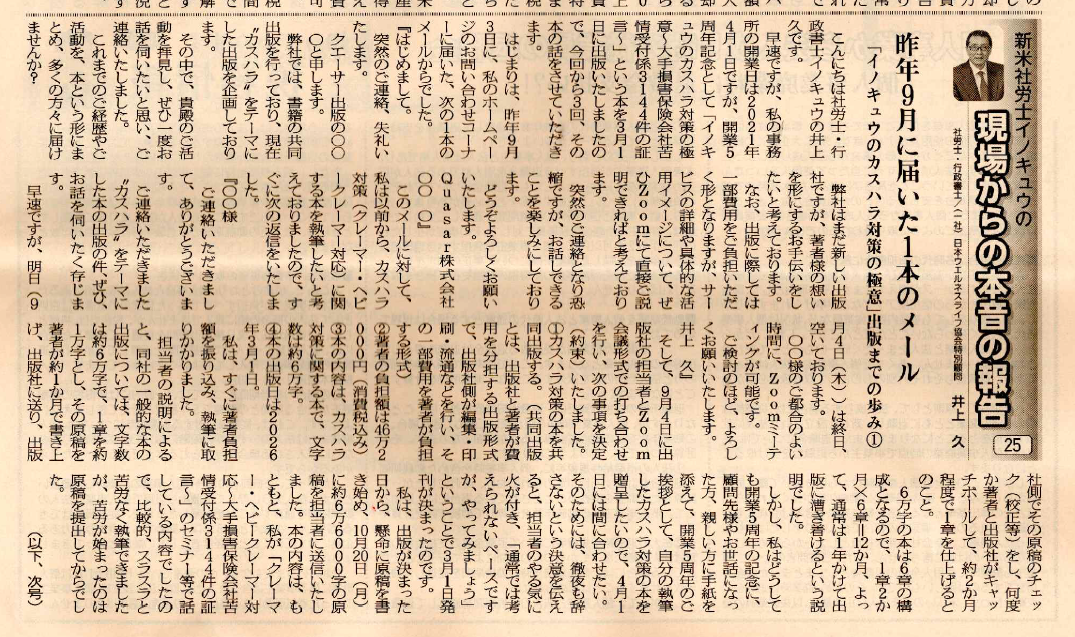 新米社労士イノキュウの
現場からの本音の報告
25
社労士・行政書士/(一社)日本ウエルネスライフ協会特別顧問 井上 久
昨年9月に届いた1本のメール
「イノキュウのカスハラ対策の極意」出版までの歩み①
こんにちは社労士・行
政書士イノキュウの井上
久です。
早速ですが、私の事務
所の開業日は2021年
4月1日ですが、開業5
周年記念として「イノキ
ュウのカスハラ対策の極
意〜大手損害保険会社苦
情受付係3144件の証
言〜」という本を3月1
日に出版いたしましたの
で、今回から3回、その
本の話をさせていただき
ます。
はじまりは、昨年9月
3日に、私のホームペー
ジのお問い合わせコーナ
ーに届いた、次の1本の
メールからでした。
『はじめまして。
突然のご連絡、失礼い
たします。
クエーサー出版の〇〇
〇と申します。
弊社では、書籍の共同
出版を行っており、現在
〝カスハラ〟をテーマに
した出版を企画しており
ます。
その中で、貴殿のご活
動を拝見し、ぜひ一度お
話を伺いたいと思い、ご
連絡いたしました。
これまでのご経歴やご
活動を、本という形にま
とめ、多くの方々に届け
ませんか?
弊社はまだ新しい出版
社ですが、著者様の想い
を形にするお手伝いをし
たいと考えております。
なお、出版に際しては
一部費用をご負担いただ
く形となりますが、サー
ビスの詳細や具体的な活
用イメージについて、ぜ
ひZoomにて直接ご説
明できればと考えており
ます。
突然のご連絡となり恐
縮ですが、お話しできる
ことを楽しみにしており
ます。
どうぞよろしくお願い
いたします。
Quasar株式会社
〇〇 〇』
このメールに対して、
私は以前から、カスハラ
対策(クレーマー・ヘビ
ークレーマー対応)に関
する本を執筆したいと考
えておりましたので、す
ぐに次の返信をいたしま
した。
『〇〇様
ご連絡いただきまし
て、ありがとうございま
す。
ご連絡いただきました
〝カスハラ〟をテーマに
した本の出版の件、ぜひ、
お話を伺いたく存じま
す。
早速ですが、明日(9
月4日(木))は終日、
空いております。
〇〇様のご都合のよい
時間に、Zoomミーテ
ィングが可能です。
ご検討のほど、よろし
くお願いいたします。
井上 久』
そして、9月4日に出
版社の担当者とZoom
会議形式での打ち合わせ
を行い、次の事項を決定
(約束)いたしました。
①カスハラ対策の本を共
同出版する。(共同出版
とは、出版社と著者が費
用を分担する出版形式
で、出版社側が編集・印
刷・流通などを行い、そ
の一部費用を著者が負担
する形式)
②著者の負担額は46万2
000円(消費税込み)
③本の内容は、カスハラ
対策に関する本で、文字
数は約6万字。
④本の出版日は2026
年3月1日。
私は、すぐに著者負担
額を振り込み、執筆に取
りかかりました。
担当者の説明による
と、同社の一般的な本の
出版については、文字数
は約6万字で、1章を約
1万字とし、その原稿を
著者が約1か月で書き上
げ、出版社に送り、出版
社側でその原稿のチェッ
ク(校正等)をし、何度
か著者と出版社がキャッ
チボールして、約2か月
程度で1章を仕上げると
のこと。
6万字の本は6章の構
成となるので、1章2か
月×6章=12か月、よっ
て、通常は1年かけて出
版に漕ぎ着けるという説
明でした。
しかし、私はどうして
も開業5周年の記念に、
顧問先様やお世話になっ
た方、親しい方に手紙を
添えて、開業5周年のご
挨拶として、自分の執筆
したカスハラ対策の本を
贈呈したいので、4月1
日には間に合わせたい。
そのためには、徹夜も辞
さないという決意を伝え
ると、担当者のやる気に
火が付き、「通常では考
えられないペースです
が、やってみましょう」
ということで3月1日発
刊が決まったのです。
私は、出版が決まった
日から、懸命に原稿を書
き始め、10月20日(月)
に約6万6000字の原
稿を担当者に送信いたし
ました。本の内容は、も
ともと、私が「クレーマ
ー・ヘビークレーマー対
応〜大手損害保険会社苦
情受付係3144件の証
言〜」のセミナー等で話
している内容でしたの
で、比較的、スラスラと
苦労なく執筆できました
が、苦労が始まったのは
原稿を提出してからでし
た。
(以下、次号)